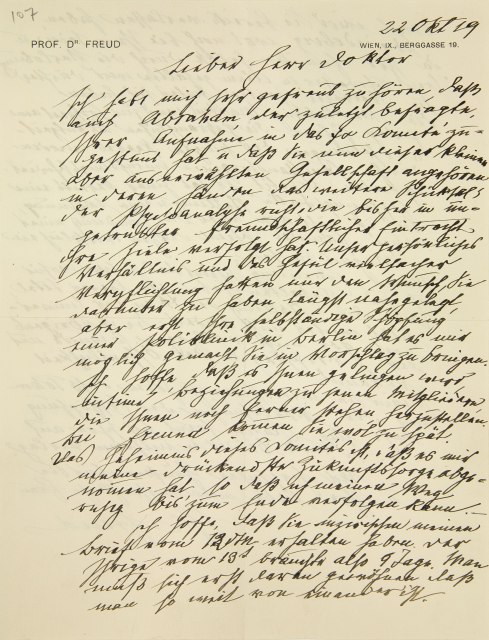 107
22 Okt 19
PROF. DR FREUD
WIEN, IX., BERGGASSE 19.
Lieber Herr Doktor
Ich habe mich sehr gefreut zu hören, daß
auch Abraham der zuletzt befragte,
Ihrer Aufnahme in das Comité zu-
gestimmt hat u daß Sie nun dieser kleinen
aber auserwählten Gesellschaft angehören
in deren Händen das weitere Schicksal
der Psychoanalyse ruht, die bisher in un-
getrübter freundschaftlicher Eintracht
ihre Ziele verfolgt hat. Unser persönliches
Verhältnis und das Gefühl vielfacher
Verpflichtung hatten mir den Wunsch, Sie
darunter zu haben längst nahegelegt
aber erst Ihre selbständige Schöpfung
einer Poliklinik in Berlin hat es mir
möglich gemacht Sie in Vorschlag zu bringen.
Ich hoffe daß es Ihnen gelingen wird
intime Beziehungen zu jenen Mitgliedern
die Ihnen noch ferner stehen herzustellen.
Bei kommen Sie wol zu spät.
Das Geheimnis dieses Comités ist, daß es mir
meine drückendste Zukunftssorge abge-
nommen hat so daß ich meinen Weg
ruhig bis zum Ende verfolgen kann. –
Ich hoffe, daß Sie inzwischen meinen
Brief vom 12dM erhalten haben. Der
Ihrige vom 13t brauchte also 9 Tage. Man
muß sich erst daran gewöhnen daß
man so weit von einander ist.